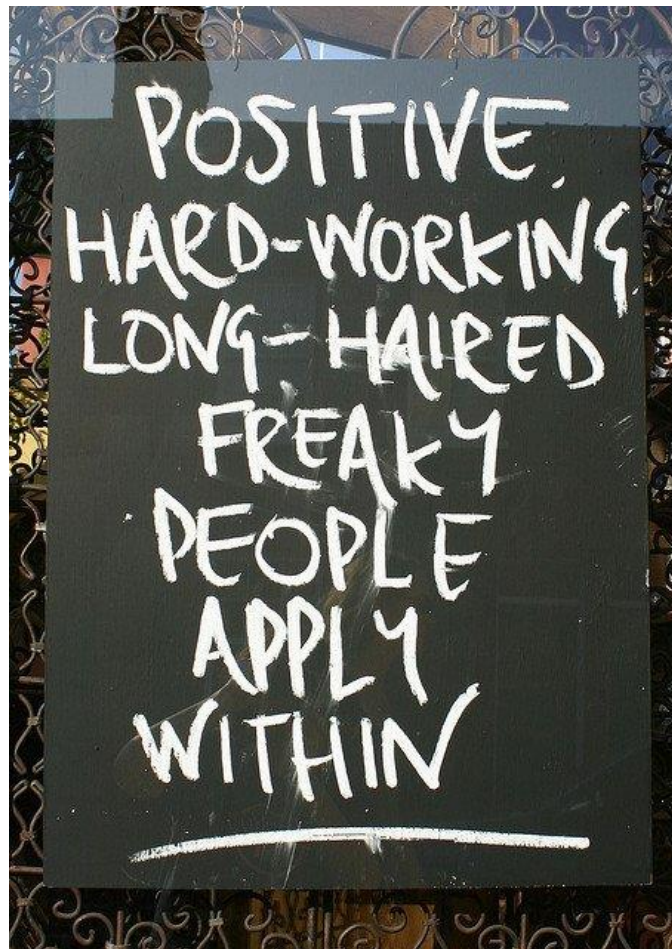 POSITIVE,
HARD-WORKING
LONG-HAIRED
FREAKY
PEOPLE
APPLY
WITHIN